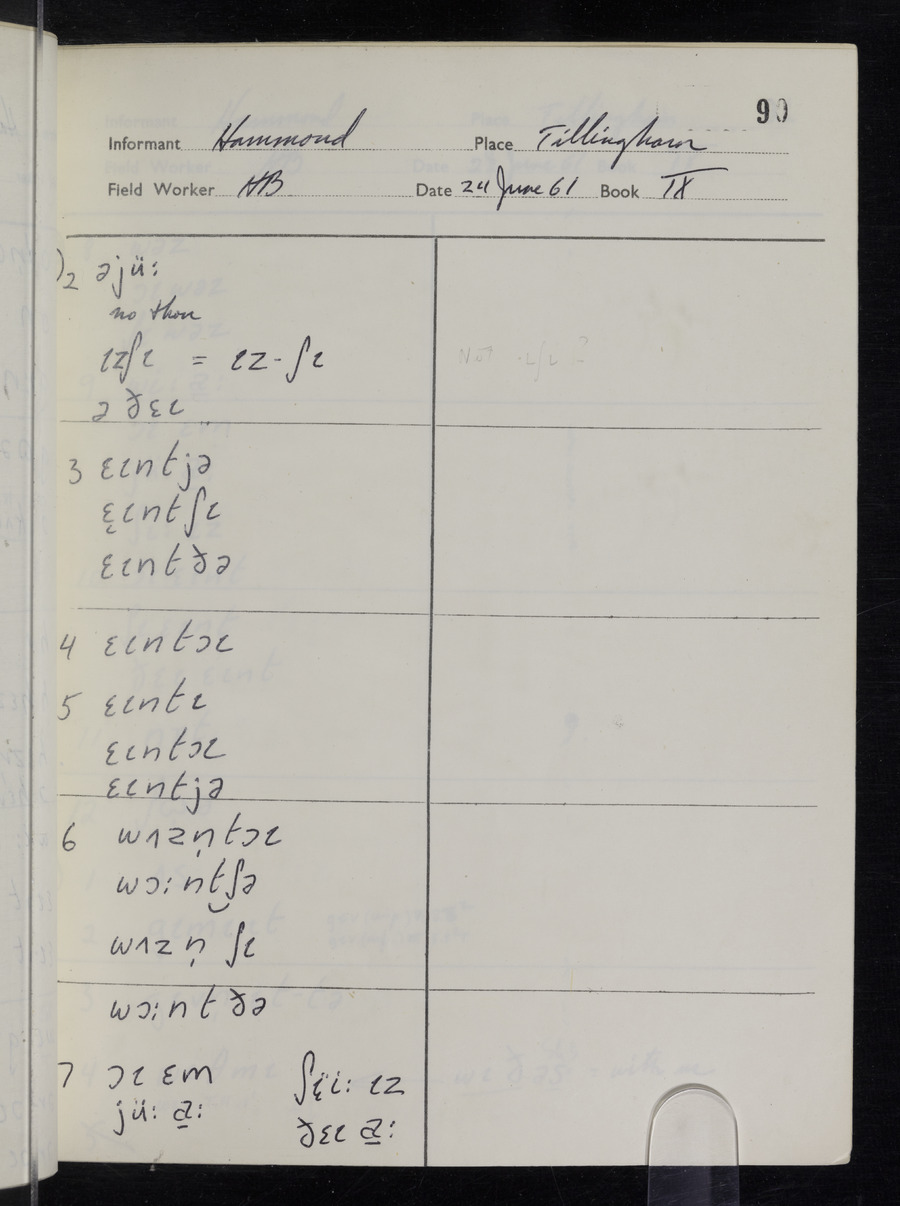 90
Informant Hammond Place Tillingham
Field Worker HB Date 24 June 61 Book IX
)2 əjü:
no thou
ɪzʃɪ = ɪz-ʃɪ
ə ð̞ɛɪ
Not ɪʃɪ ?
3 ɛɪntjə
ɛ̞ɪntʃɪ
ɛɪntð̞ə
4 ɛɪntɔɪ
5 ɛɪntɪ
ɛɪntɔɪ
ɛɪntjə
6 wʌzn̩tɔɪ
wɔ:nt͜ʃə
wʌzn̩ ʃɪ
wɔ:nt ð̞ə
7 ɔɪ ɛm ʃɛ̈i: ɪz
jü: a̱: ð̞ɛɪ a̱: